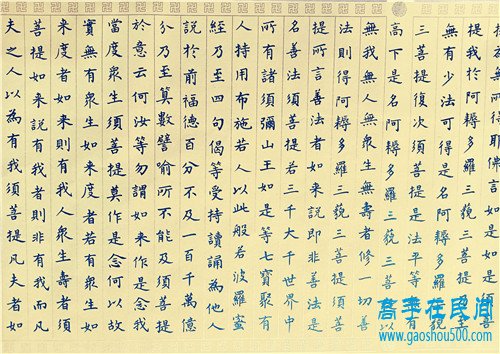 所得耶佛言如是如是須菩
提我於阿耨多羅三藐三菩提乃至
無有少法可得是名阿耨多羅三藐
三菩提復次須菩提是法平等無有
高下是名阿耨多羅三藐三菩提以
無我無人無眾生無壽者修一切善
法則得阿耨多羅三藐三菩提須菩
提所言善法者如來說即非善法是
名善法須菩提若三千大千世界中
所有諸須彌山王如是等七寶聚有
人持用布施若人以此般若波羅蜜
經乃至四句偈等受持讀誦為他人
說於前福德百分不及一百千萬億
分乃至算數譬喻所不能及須菩提
於意云何汝等勿謂如来作是念我
當度眾生須菩提莫作是念何以故
實無有眾生如来度者若有眾生如
来度者如来則有我人眾生壽者須
菩提如来說有我者則非有我而凡
夫之人以為有我須菩提凡夫者如
高手在民间
www.gaoshou500.com